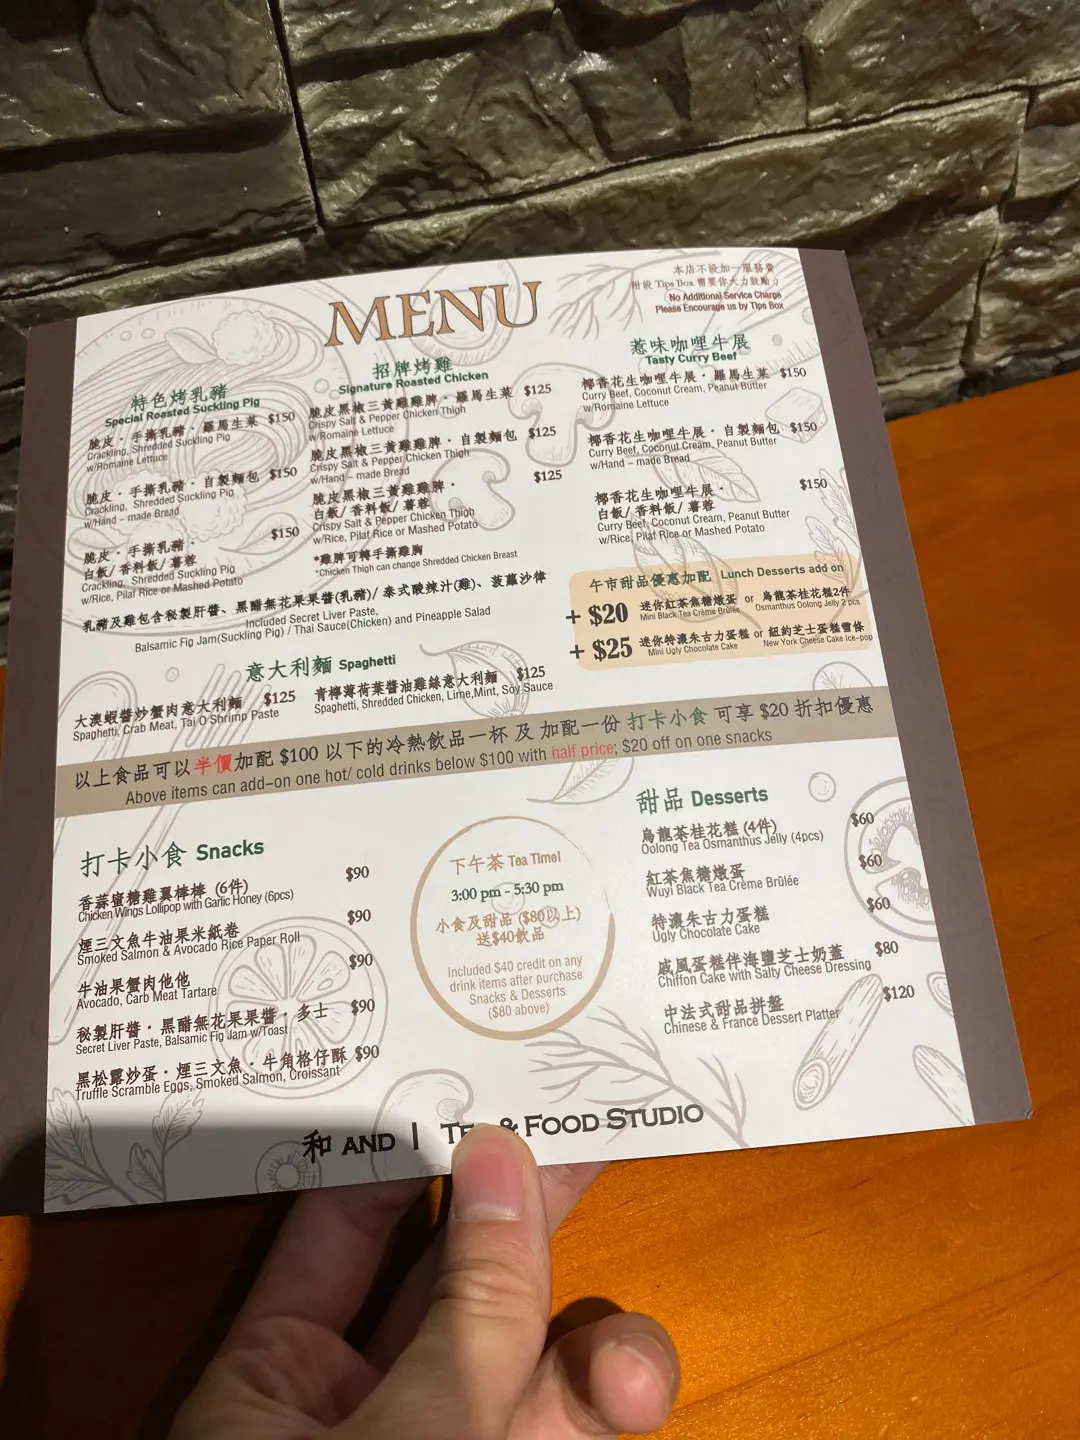 MENU
本店不設加一服務費
附設 Tips Box 需要你大力鼓勵 :)
No Additional Service Charge
Please Encourage us by Tips Box
特色烤乳豬
Special Roasted Suckling Pig
脆皮·手撕乳豬·羅馬生菜 $150
Crackling, Shredded Suckling Pig
w/Romaine Lettuce
脆皮·手撕乳豬·自製麵包 $150
Crackling, Shredded Suckling Pig
w/Hand – made Bread
脆皮·手撕乳豬· $150
白飯/ 香料飯/ 薯蓉
Crackling, Shredded Suckling Pig
w/Rice, Pilaf Rice or Mashed Potato
招牌烤雞
Signature Roasted Chicken
脆皮黑椒三黃雞雞髀·羅馬生菜 $125
Crispy Salt & Pepper Chicken Thigh
w/Romaine Lettuce
脆皮黑椒三黃雞雞髀·自製麵包 $125
Crispy Salt & Pepper Chicken Thigh
w/Hand – made Bread
脆皮黑椒三黃雞雞髀· $125
白飯/ 香料飯/ 薯蓉
Crispy Salt & Pepper Chicken Thigh
w/Rice, Pilaf Rice or Mashed Potato
*雞髀可轉手撕雞胸
*Chicken Thigh can change Shredded Chicken Breast
乳豬及雞包含秘製肝醬、黑醋無花果果醬(乳豬)/ 泰式酸辣汁(雞)、菠蘿沙律
Included Secret Liver Paste,
Balsamic Fig Jam(Suckling Pig) / Thai Sauce(Chicken) and Pineapple Salad
惹味咖哩牛展
Tasty Curry Beef
椰香花生咖哩牛展·羅馬生菜 $150
Curry Beef, Coconut Cream, Peanut Butter
w/Romaine Lettuce
椰香花生咖哩牛展·自製麵包 $150
Curry Beef, Coconut Cream, Peanut Butter
w/Hand – made Bread
椰香花生咖哩牛展· $150
白飯/ 香料飯/ 薯蓉
Curry Beef, Coconut Cream, Peanut Butter
w/Rice, Pilaf Rice or Mashed Potato
午市甜品優惠加配 Lunch Desserts add on
+ $20 迷你紅茶焦糖燉蛋 or 烏龍茶桂花糕2件
Mini Black Tea Crème Brûlée Osmanthus Oolong Jelly 2 pcs
+ $25 迷你特濃朱古力蛋糕 or 紐約芝士蛋糕雪條
Mini Ugly Chocolate Cake New York Cheese Cake Ice-pop
意大利麵 Spaghetti
大澳蝦醬炒蟹肉意大利麵 $125
Spaghetti, Crab Meat, Tai O Shrimp Paste
青檸薄荷葉醬油雞絲意大利麵 $125
Spaghetti, Shredded Chicken, Lime,Mint, Soy Sauce
以上食品可以半價加配 $100 以下的冷熱飲品一杯 及 加配一份 打卡小食 可享 $20 折扣優惠
Above items can add–on one hot/ cold drinks below $100 with half price; $20 off on one snacks
打卡小食 Snacks
香蒜蜜糖雞翼棒棒 (6件) $90
Chicken Wings Lollipop with Garlic Honey (6pcs)
煙三文魚牛油果米紙卷 $90
Smoked Salmon & Avocado Rice Paper Roll
牛油果蟹肉他他 $90
Avocado, Carb Meat Tartare
秘製肝醬·黑醋無花果果醬·多士 $90
Secret Liver Paste, Balsamic Fig Jam w/Toast
黑松露炒蛋·煙三文魚·牛角格仔酥 $90
Truffle Scramble Eggs, Smoked Salmon, Croissant
下午茶 Tea Time!
3:00 pm - 5:30 pm
小食及甜品 ($80以上)
送$40飲品
Included $40 credit on any
drink items after purchase
Snacks & Desserts
($80 above)
甜品 Desserts
烏龍茶桂花糕 (4件) $60
Oolong Tea Osmanthus Jelly (4pcs)
紅茶焦糖燉蛋 $60
Wuyi Black Tea Crème Brûlée
特濃朱古力蛋糕 $60
Ugly Chocolate Cake
戚風蛋糕伴海鹽芝士奶蓋 $80
Chiffon Cake with Salty Cheese Dressing
中法式甜品拼盤 $120
Chinese & France Dessert Platter
和 AND | & FOOD STUDIO